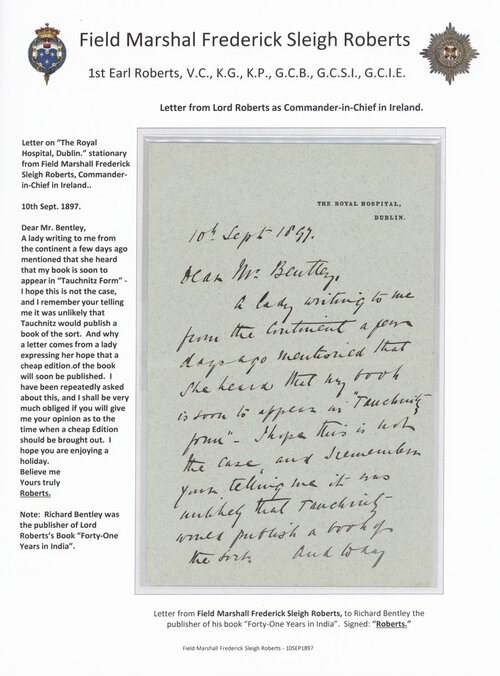 Field Marshal Frederick Sleigh Roberts
1st Earl Roberts, V.C., K.G., K.P., G.C.B., G.C.S.I., G.C.I.E.
Letter from Lord Roberts as Commander-in-Chief in Ireland.
Letter on “The Royal
Hospital, Dublin.” stationary
from Field Marshall Frederick
Sleigh Roberts, Commander-
in-Chief in Ireland..
10th Sept. 1897.
Dear Mr. Bentley,
A lady writing to me from
the continent a few days ago
mentioned that she heard
that my book is soon to
appear in “Tauchnitz Form” -
I hope this is not the case,
and I remember your telling
me it was unlikely that
Tauchnitz would publish a
book of the sort.  And why
a letter comes from a lady
expressing her hope that a
cheap edition.of the book
will soon be published.  I
have been repeatedly asked
about this, and I shall be very
much obliged if you will give
me your opinion as to the
time when a cheap Edition
should be brought out.  I
hope you are enjoying a
holiday.
Believe me
Yours truly
Roberts.
Note:  Richard Bentley was
the publisher of Lord
Roberts’s Book “Forty-One
Years in India”.
THE ROYAL HOSPITAL,
DUBLIN.
10th Sept 1897.
Dear Mr. Bentley,
A lady writing to me
from the Continent a few
days ago mentioned that
she heard that my book
is soon to appear in "Tauchnitz
form" - I hope this is not
the case, and I remember
your telling me it was
unlikely that Tauchnitz
would publish a book of
the sort. And today
Letter from Field Marshall Frederick Sleigh Roberts, to Richard Bentley the
publisher of his book “Forty-One Years in India”.  Signed: “Roberts.”
Field Marshall Frederick Sleigh Roberts - 10SEP1897